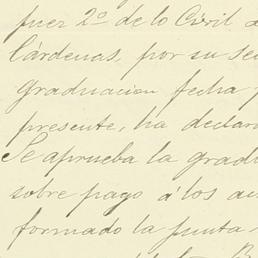 juez 2º de lo Civil d
Cárdenas, por su se
graduacion fecha
presente, ha declara
Se aprueba la gradu
sobre pago á los au
formado la junta